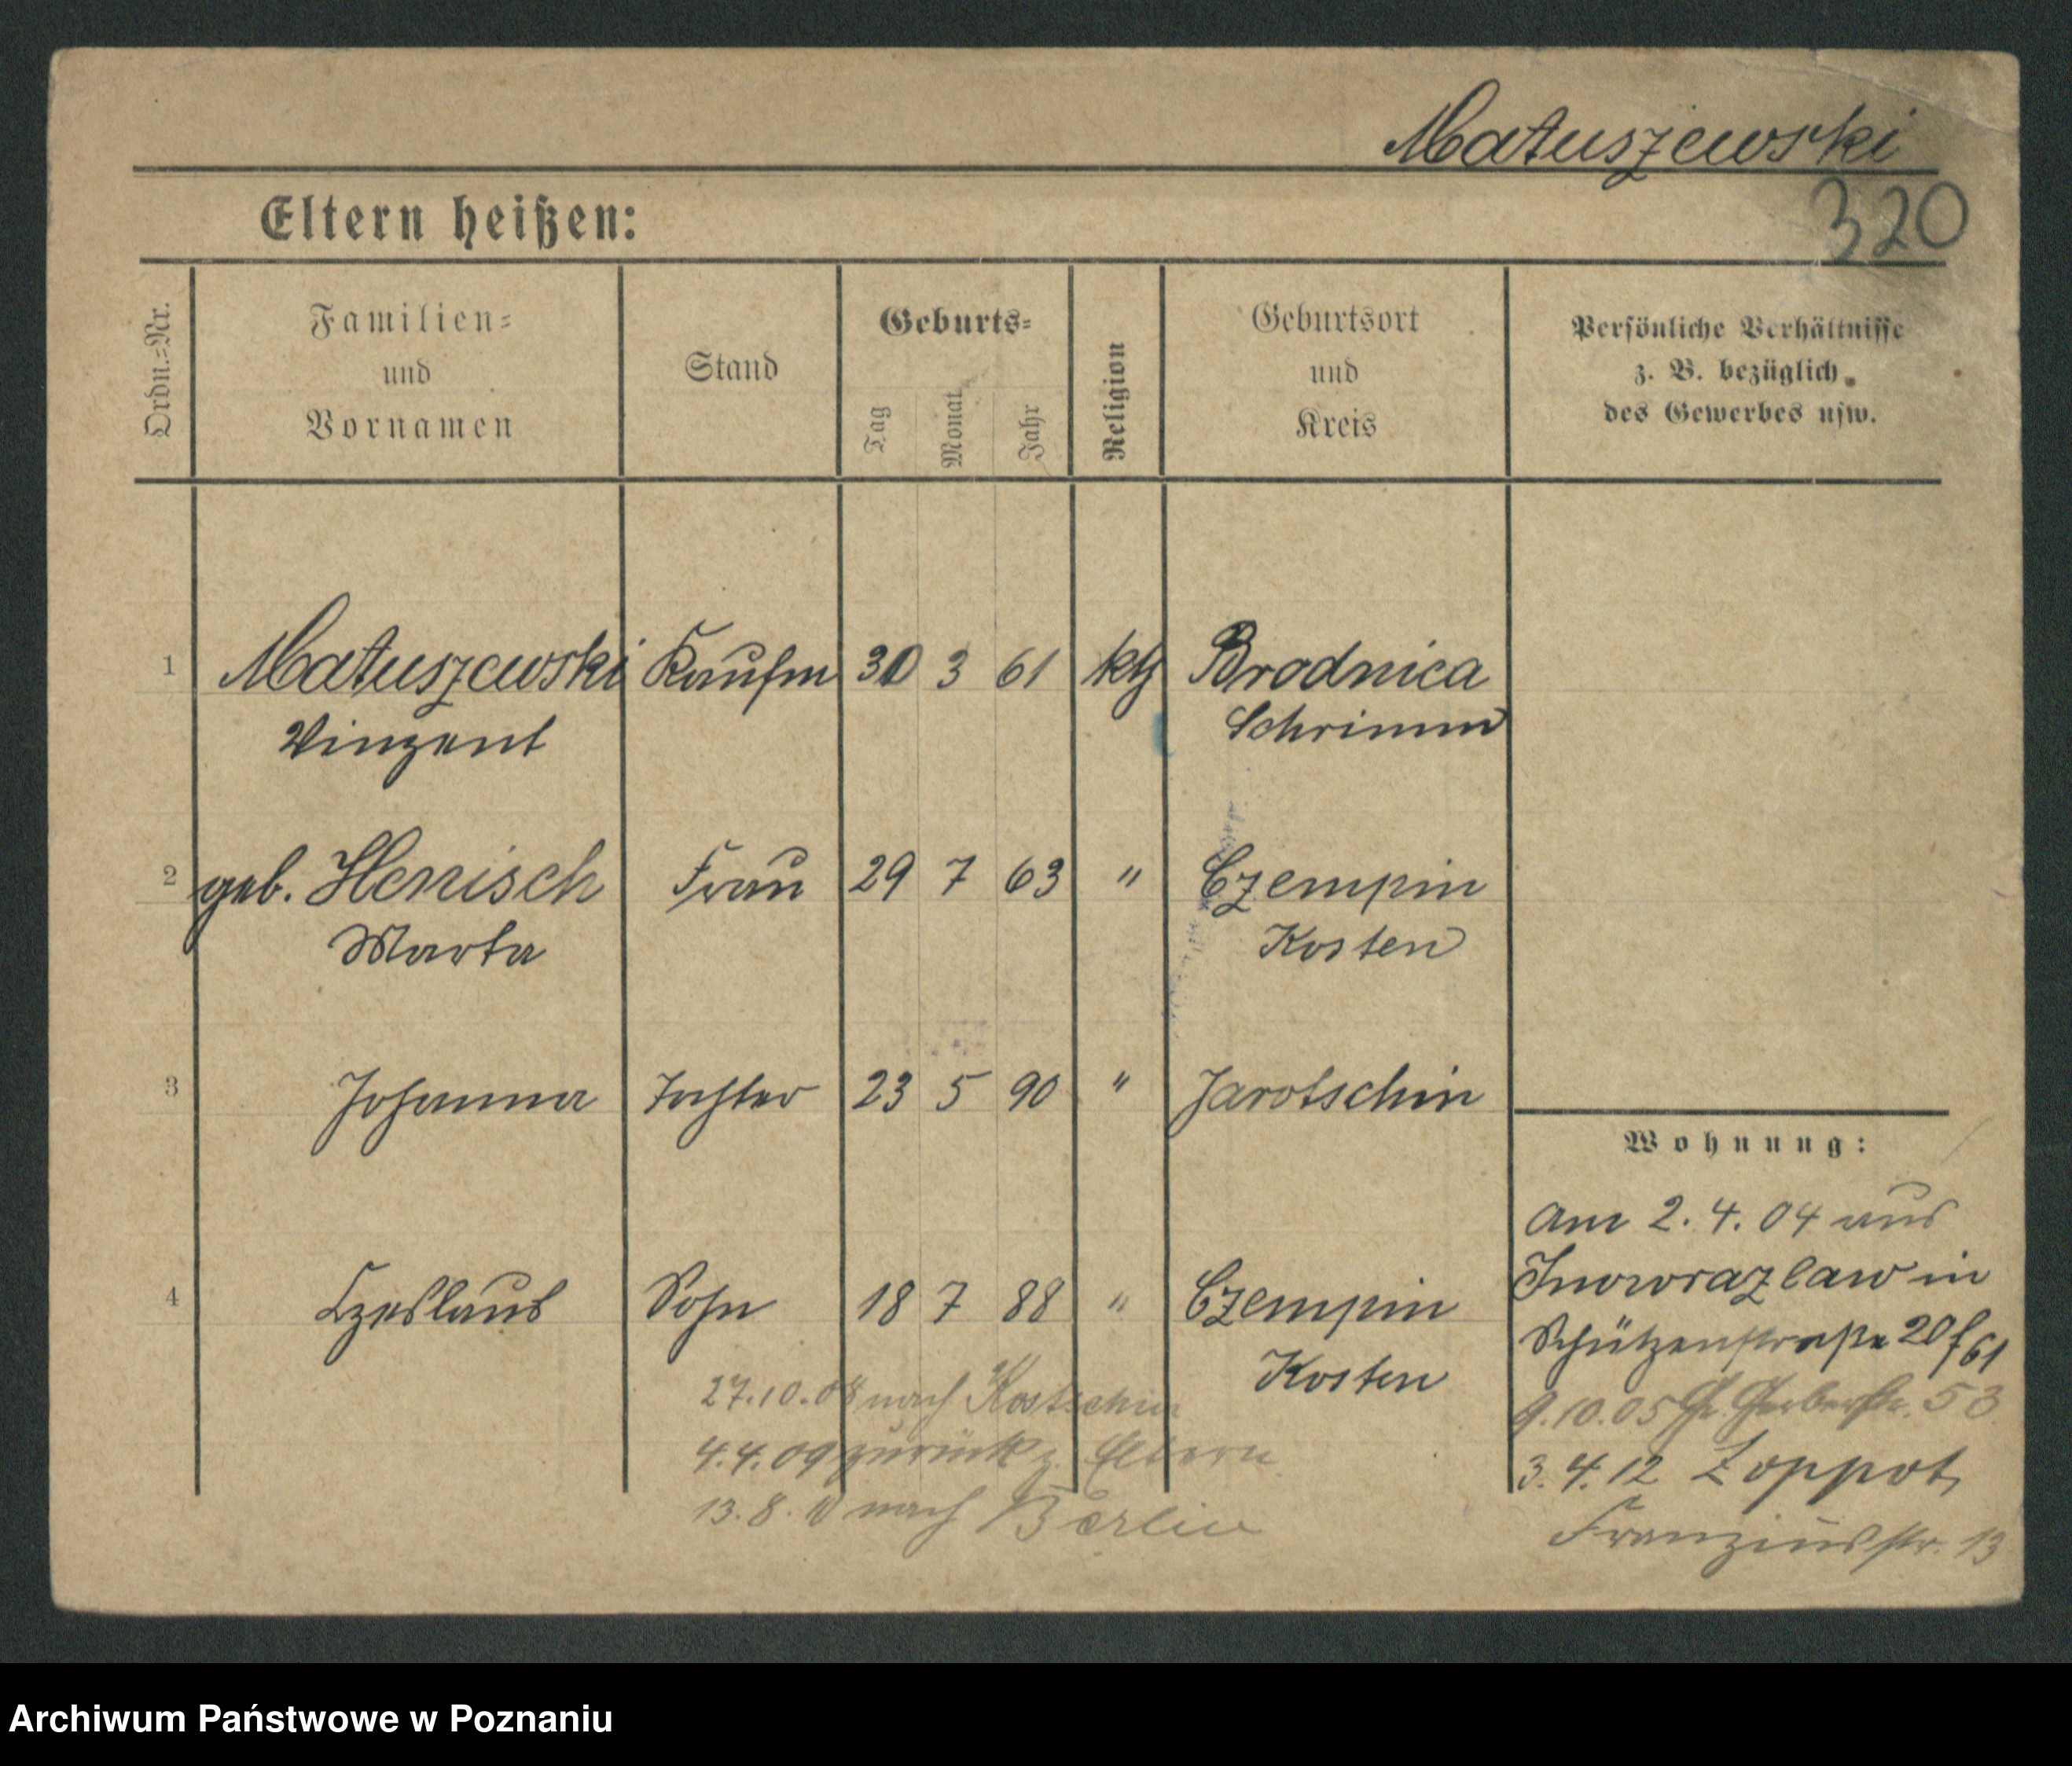 Matuszewski
320
Eltern heißen:
Ordn.=Nr.
Familien=
und
Vornamen
Stand
Geburts=
Tag
Monat
Jahr
Religion
Geburtsort
und
Kreis
Persönliche Verhältnisse
z. B. bezüglich
des Gewerbes usw.
1 Matuszewski Kaufm 30 3 61 kth Brodnica
Vinzent Schrimm
2 geb. Henisch Frau 29 7 63 " Czempin
Marta Kosten
3 Johanna Tochter 23 5 90 " Jarotschin
4 Czeslaus Sohn 18 7 88 " Czempin
Kosten
27.10.08 nach Kostschin
4.4.09 zurück z. Eltern
13.8. nach Berlin
Wohnung:
Am 2. 4. 04 aus
Inowrazlaw in
Schützenstraße 20
9.10.05 Gr. Gerberstr. 53
3.4.12 Zoppot,
Franziusstr. 13
Archiwum Państwowe w Poznaniu